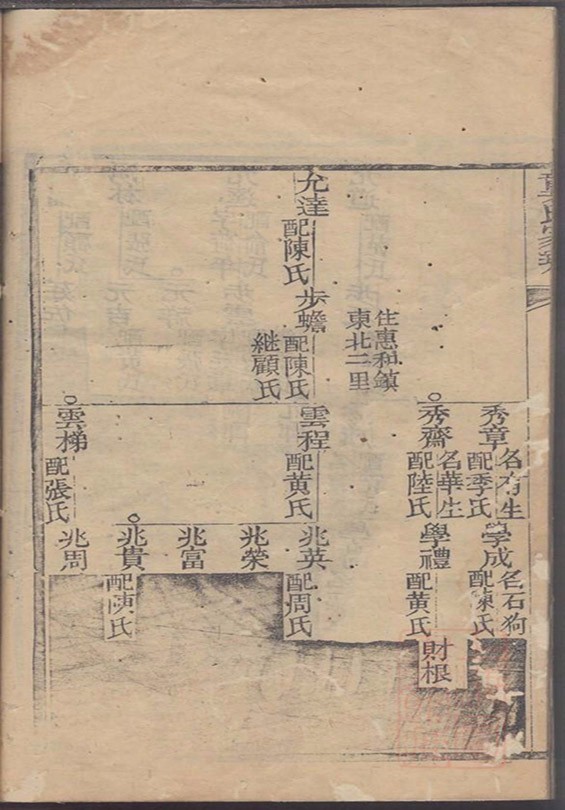 秀章 名有生
配季氏
學成 名石狗
配陳氏
秀齋 名華生
配陸氏
學禮
配黄氏
財根
住惠和鎮
東北二里
允達
配陳氏
步蟾
配陳氏
継顧氏
雲程
配黄氏
兆英
配周氏
兆榮
兆富
兆貴
配陳氏
雲梯
配張氏
兆周